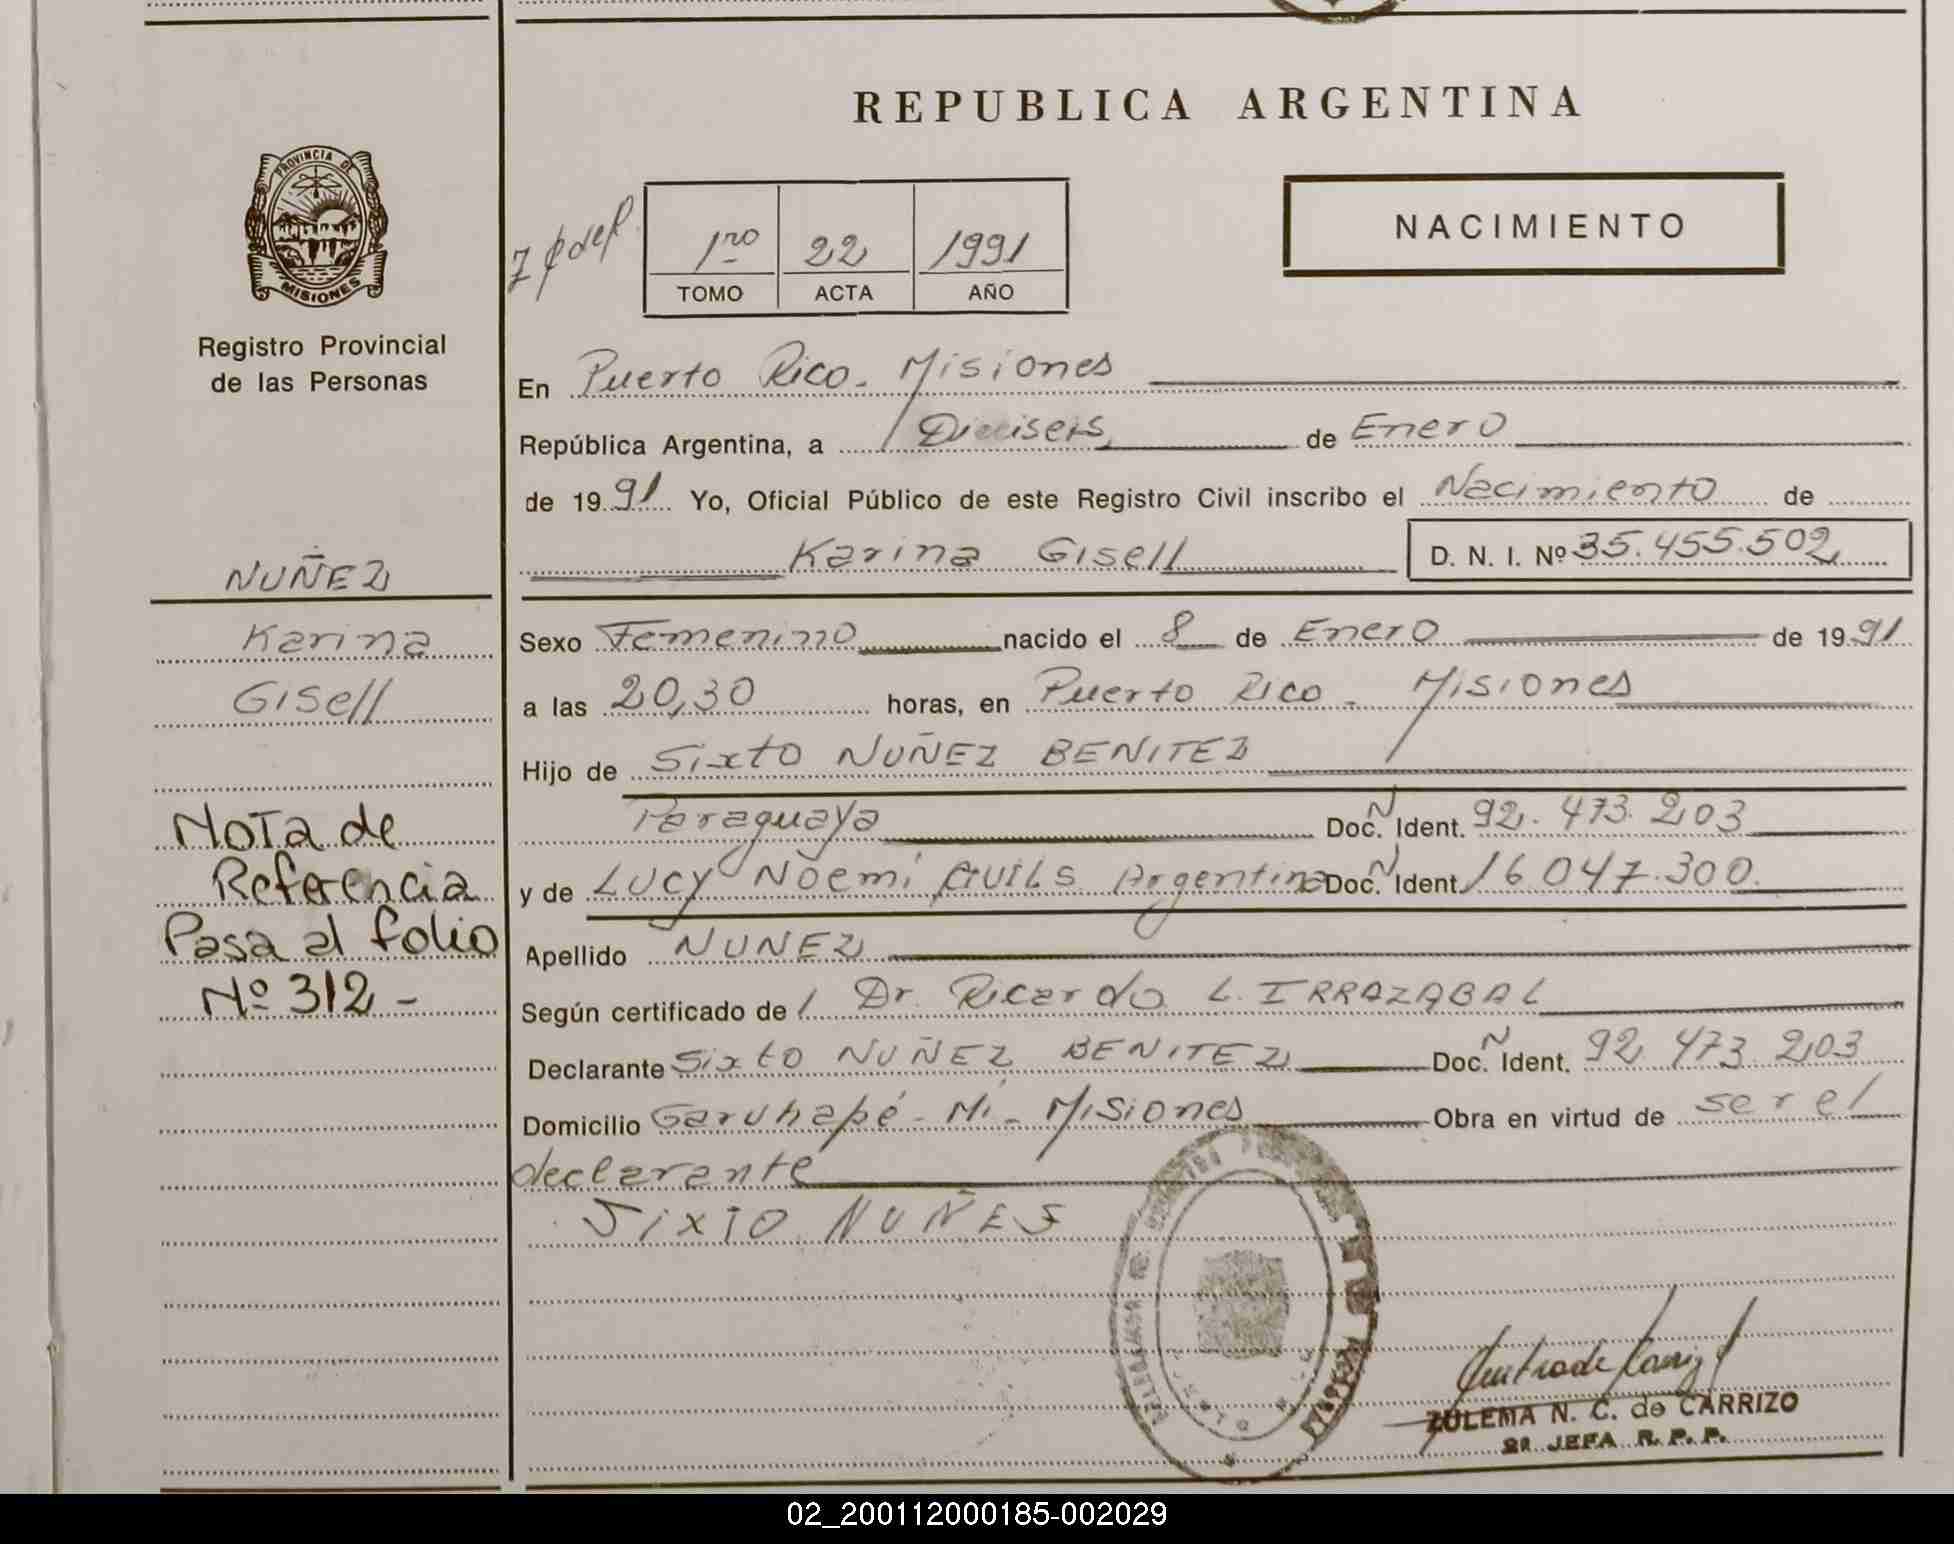 REPUBLICA ARGENTINA
PROVINCIA DE
MISIONES
Registro Provincial
de las Personas
1ro 22 1991
TOMO ACTA AÑO
NACIMIENTO
En Puerto Rico. Misiones
República Argentina, a Dieciseis de Enero
de 1991 Yo, Oficial Público de este Registro Civil inscribo el Nacimiento de
Karina Gisell D. N. I. Nº 35.455.502
NUÑEZ
Karina
Gisell
Nota de
Referencia
Pasa al folio
Nº 312 -
Sexo Femenino nacido el 8 de Enero de 1991
a las 20,30 horas, en Puerto Rico. Misiones
Hijo de Sixto NUÑEZ BENITEZ
Paraguaya Doc. N Ident. 92.473.203
y de Lucy Noemi Argentina Doc. N Ident. 16.047.300
Apellido NUNEZ
Según certificado de Dr. Ricardo L. IRRAZABAL
Declarante Sixto NUÑEZ BENITEZ Doc. N Ident. 92.473.203
Domicilio Garuhapé - Mi - Misiones Obra en virtud de ser el
declarante
SIXTO NUÑES
ZULEMA N. C. de CARRIZO
2ª JEFA R. P. P.
02_200112000185-002029